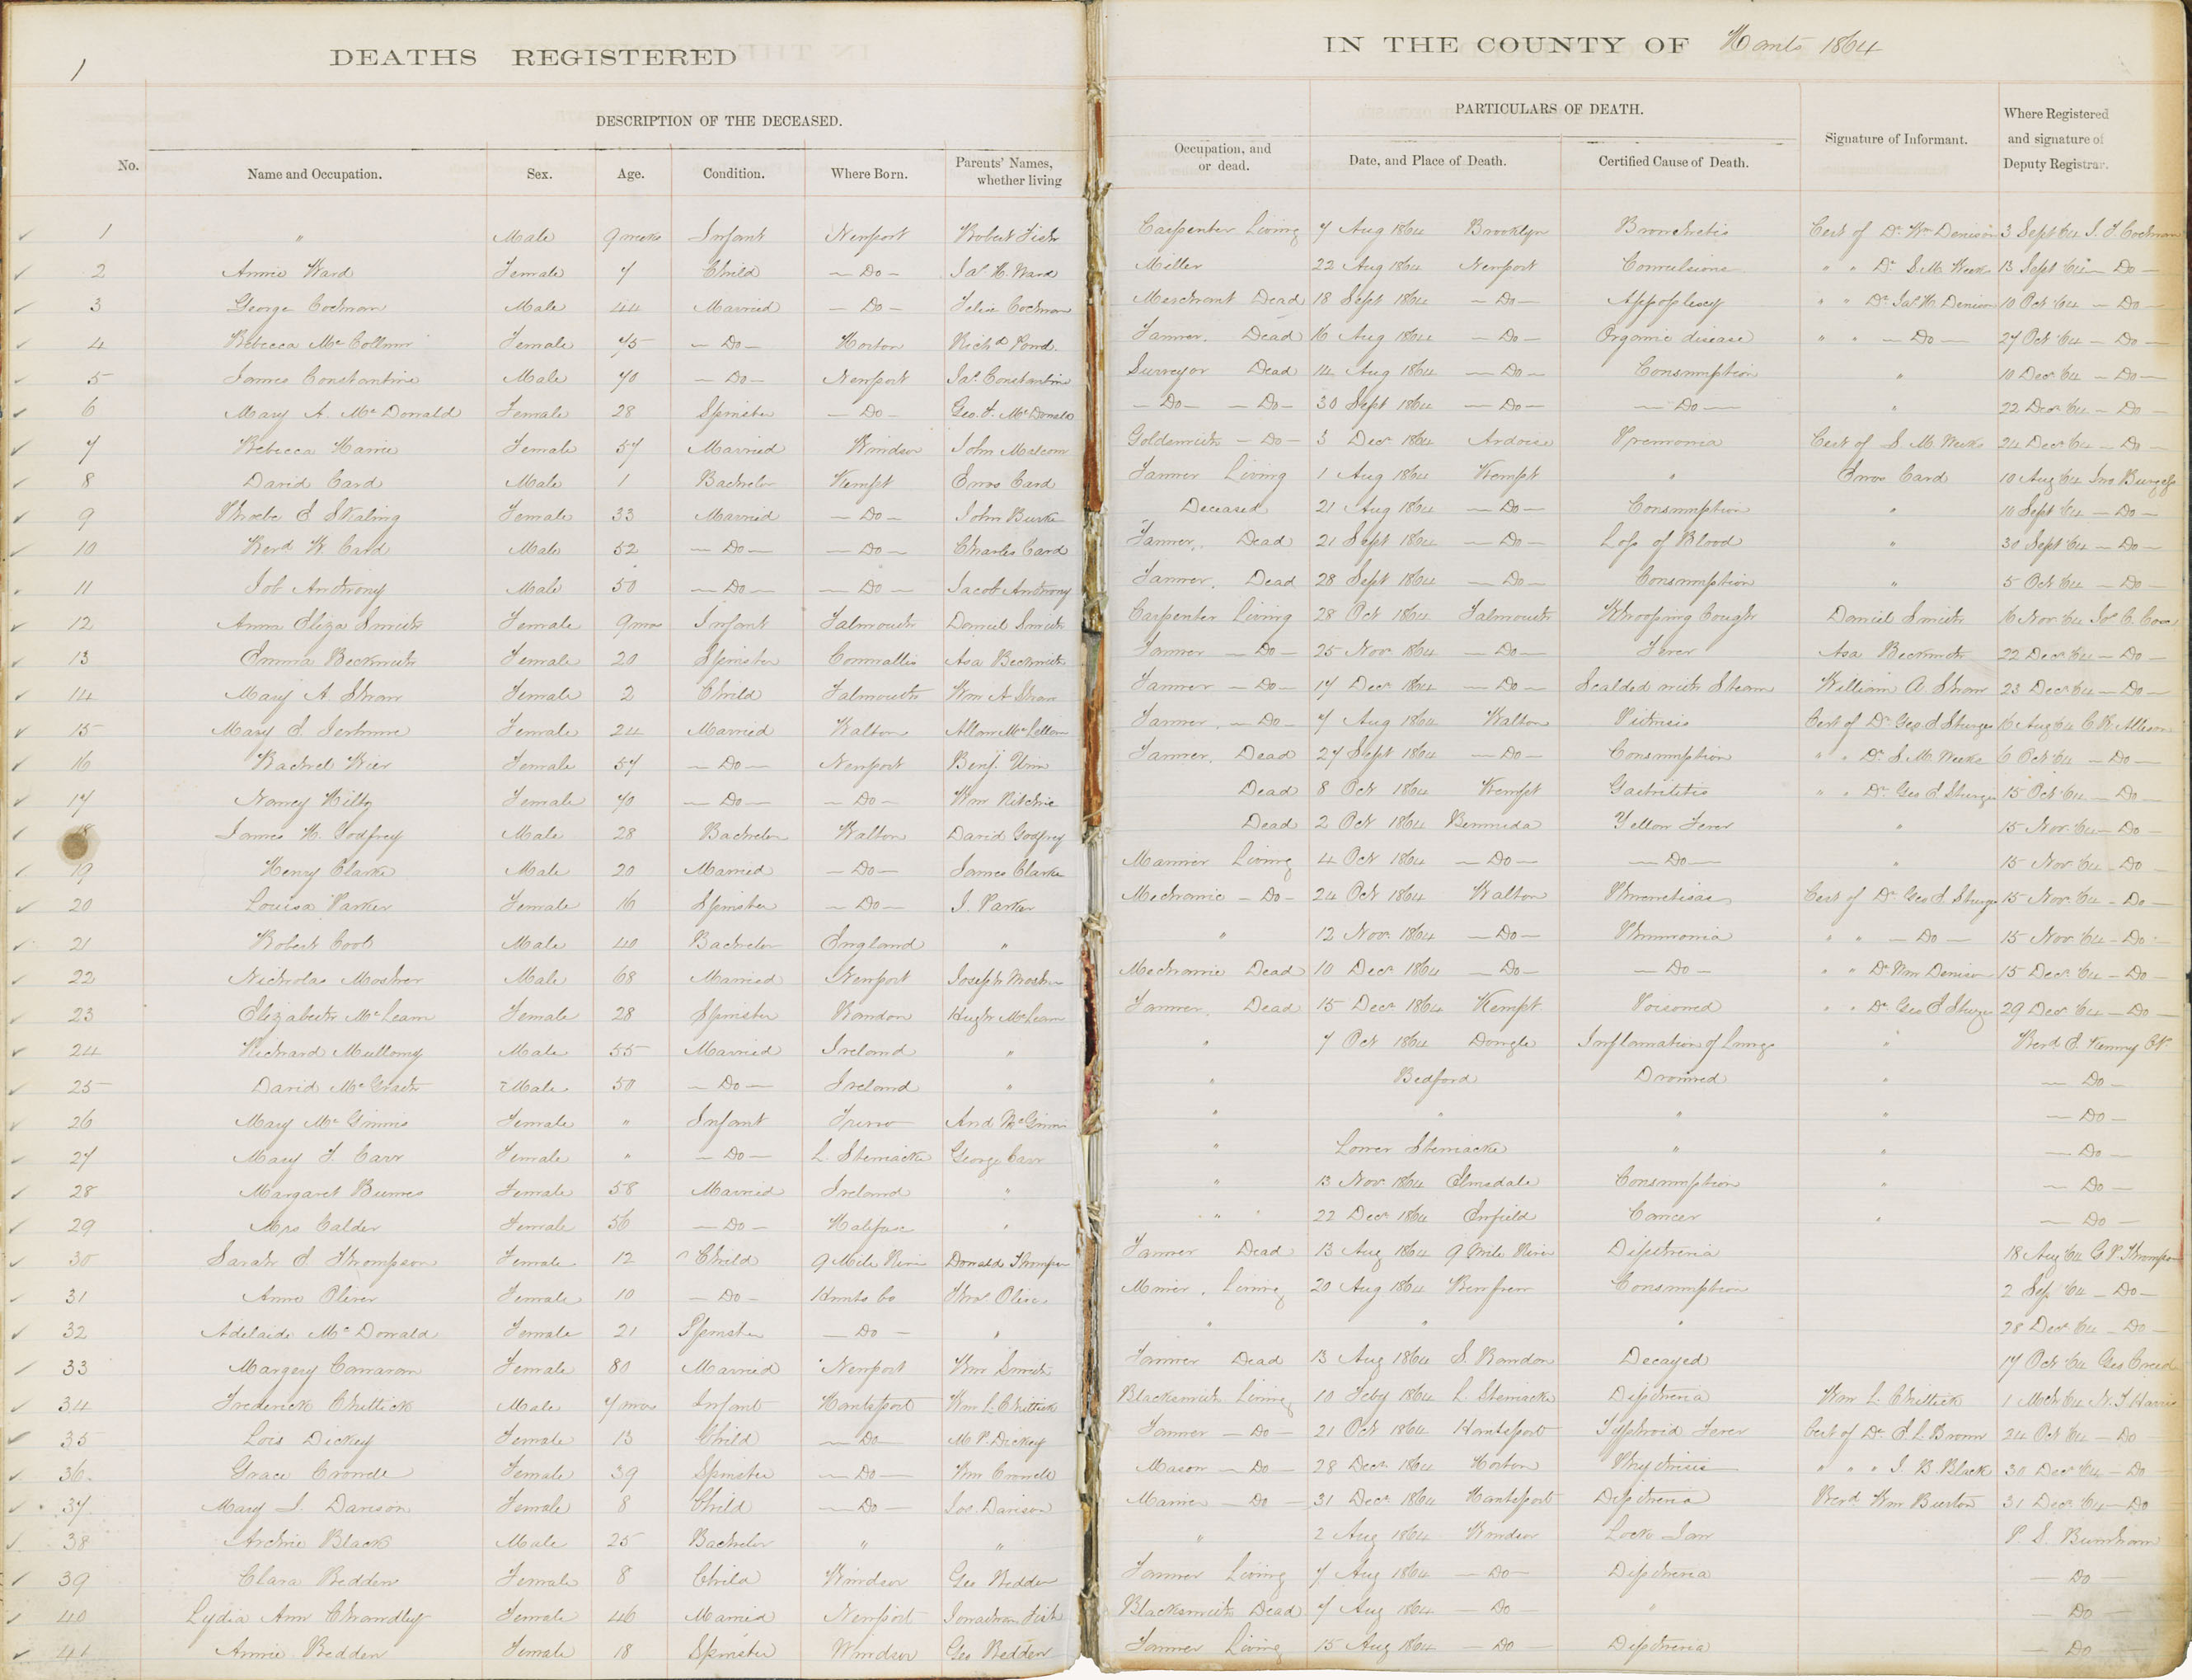 1
DEATHS REGISTERED
IN THE COUNTY OF Hants 1864
DESCRIPTION OF THE DECEASED.
PARTICULARS OF DEATH.
No. Name and Occupation. Sex. Age. Condition. Where Born. Parents' Names, whether living Occupation, and or dead. Date, and Place of Death. Certified Cause of Death. Signature of Informant. Where Registered and signature of Deputy Registrar.
1 " Male 9 weeks Infant Newport Robert Fish Carpenter Living 7 Aug 1864 Brooklyn Bronchetis Cert of Dr Wm Denison 3 Sept 64 J. F. Cochran
2 Annie Ward Female 7 Child — Do — Jas H. Ward Miller 22 Aug 1864 Newport Convulsions " " Dr S. M. Weeks 13 Sept 64 — Do —
3 George Cochran Male 44 Married — Do — Felix Cochran Merchant Dead 18 Sept 1864 — Do — Appoplexy " " Dr Jas H. Denison 10 Oct 64 — Do —
4 Rebecca Female 75 — Do — Horton Richd Pond. Farmer. Dead 16 Aug 1864 — Do — Organic disease " " — Do — 27 Oct 64 — Do —
5 James Constantine Male 70 — Do — Newport Jas. Constantine Surveyor Dead 14 Aug 1864 — Do — Consumption " 10 Decr 64 — Do —
6 Mary A. McDonald Female 28 Spinster — Do — Geo. F. McDonald — Do — — Do — 30 Sept 1864 — Do — — Do — " 22 Decr 64 — Do —
7 Rebecca Harvie Female 57 Married Windsor John Malcom Goldsmith — Do — 3 Decr 1864 Ardoise Pneumonia Cert of S. M. Weeks 24 Decr 64 — Do —
8 David Card Male 1 Bachelor Kempt Enos Card Farmer Living 1 Aug 1864 Kempt " Enos Card 10 Aug 64 Jno Burgess
9 Phoebe E Skaling Female 33 Married — Do — John Burke Deceased 21 Aug 1864 — Do — Consumption " 10 Sept 64 — Do —
10 Revd W. Card Male 52 — Do — — Do — Charles Card Farmer. Dead 21 Sept 1864 — Do — Loss of Blood " 30 Sept 64 — Do —
11 Job Anthony Male 50 — Do — — Do — Jacob Anthony Farmer. Dead 28 Sept 1864 — Do — Consumption " 5 Oct 64 — Do —
12 Ann Eliza Smith Female 9 mos Infant Falmouth Daniel Smith Carpenter Living 28 Oct 1864 Falmouth Whooping Cough Daniel Smith 16 Nov. 64
13 Emma Beckwith Female 20 Spinster Cornwallis Asa Beckwith Farmer — Do — 25 Nov. 1864 — Do — Fever Asa Beckwith 22 Decr 64 — Do —
14 Mary A Shaw Female 2 Child Falmouth Wm A Shaw Farmer — Do — 17 Decr 1864 — Do — Scalded with Steam William A. Shaw 23 Decr 64 — Do —
15 Mary E. Female 24 Married Walton Allan McLellan Farmer. — Do — 7 Aug 1864 Walton Cert of Dr Geo E Sturges 16 Aug 64 C. R. Allison
16 Rachel Wier Female 57 — Do — Newport Benj. Farmer. Dead 27 Sept 1864 — Do — Consumption " " Dr S. M. Weeks 6 Oct 64 — Do —
17 Nancy Hiltz Female 70 — Do — — Do — Wm Ritchie Dead 8 Oct 1864 Kempt Gastritis " " Dr Geo E Sturges 15 Oct 64 — Do —
18 James H. Godfrey Male 28 Bachelor Walton David Godfrey Dead 2 Oct 1864 Bermuda Yellow Fever " 15 Nov 64 — Do —
19 Henry Clarke Male 20 Married — Do — James Clarke Mariner Living 4 Oct 1864 — Do — — Do — " 15 Nov 64 — Do —
20 Louisa Parker Female 16 Spinster — Do — J. Parker Mechanic — Do — 24 Oct 1864 Walton Cert of Dr Geo E Sturges 15 Nov. 64 — Do —
21 Robert Male 40 Bachelor England " " 12 Nov. 1864 — Do — " " — Do — 15 Nov. 64 — Do —
22 Nicholas Mosher Male 68 Married Newport Joseph Mosher Mechanic Dead 10 Decr 1864 — Do — — Do — " " Dr Wm Denison 15 Decr 64 — Do —
23 Elizabeth McLearn Female 28 Spinster Rawdon Hugh McLearn Farmer. Dead 15 Decr 1864 Kempt Poisoned " " Dr Geo E Sturges 29 Decr 64 — Do —
24 Richard Mullony Male 55 Married Ireland " " 7 Oct 1864 Dongle Inflamation of Lungs " Revd E. Kenny
25 David McGrath Male 50 — Do — Ireland " " Bedford Drowned " — Do —
26 Mary McGinnis Female " Infant And McGinnis " " " " — Do —
27 Mary F. Carr Female " — Do — L. Stewiacke George Carr " Lower Stewiacke " " — Do —
28 Margaret Burnes Female 58 Married Ireland " " 13 Nov. 1864 Elmsdale Consumption " — Do —
29 Mrs Calder Female 56 — Do — Halifax " " 22 Decr 1864 Enfield Cancer " — Do —
30 Sarah E Thompson Female 12 Child 9 Mile River Donald Thompson Farmer Dead 13 Aug 1864 9 Mile River Diptheria 18 Aug 64 G P Thompson
31 Anne Oliver Female 10 — Do — Hants Co Oliver Miner. Living 20 Aug 1864 Renfrew Consumption 2 Sep 64 — Do —
32 Adelaide McDonald Female 21 Spinster — Do — " " " " 28 Decr 64 — Do —
33 Margery Female 80 Married Newport Wm Smith Farmer Dead 13 Aug 1864 S. Rawdon Decayed 17 Oct 64 Geo Creed
34 Frederick Chittick Male 7 mos Infant Hantsport Wm L. Chittick Blacksmith Living 10 Feby 1864 L. Stewiacke Diptheria Wm L. Chittick 1 Mch 64 N. T. Harris
35 Lois Dickey Female 13 Child — Do — M P. Dickey Farmer — Do — 21 Oct 1864 Hantsport Typhoid Fever Cert of Dr E. L. Brown 24 Oct 64 — Do —
36. Grace Crowell Female 39 Spinster — Do — Wm Crowell Mason — Do — 28 Decr 1864 Horton " " " J. B. Black 30 Decr 64 — Do —
37. Mary J. Davison Female 8 Child — Do — Jos. Davison Mariner — Do — 31 Decr 1864 Hantsport Diptheria Revd Wm Burton 31 Decr 64 — Do
38 Archie Black Male 25 Bachelor " " " 2 Aug 1864 Windsor Lock Jaw P. S. Burnham
39 Clara Redden Female 8 Child Windsor Geo Redden Farmer Living 7 Aug 1864 — Do — Diptheria — Do —
40 Lydia Ann Chandley Female 46 Married Newport Jonathan Fish Blacksmith Dead 7 Aug 1864 — Do — " — Do —
41 Annie Redden Female 18 Spinster Windsor Geo Redden Farmer Living 15 Aug 1864 — Do — Diptheria — Do —